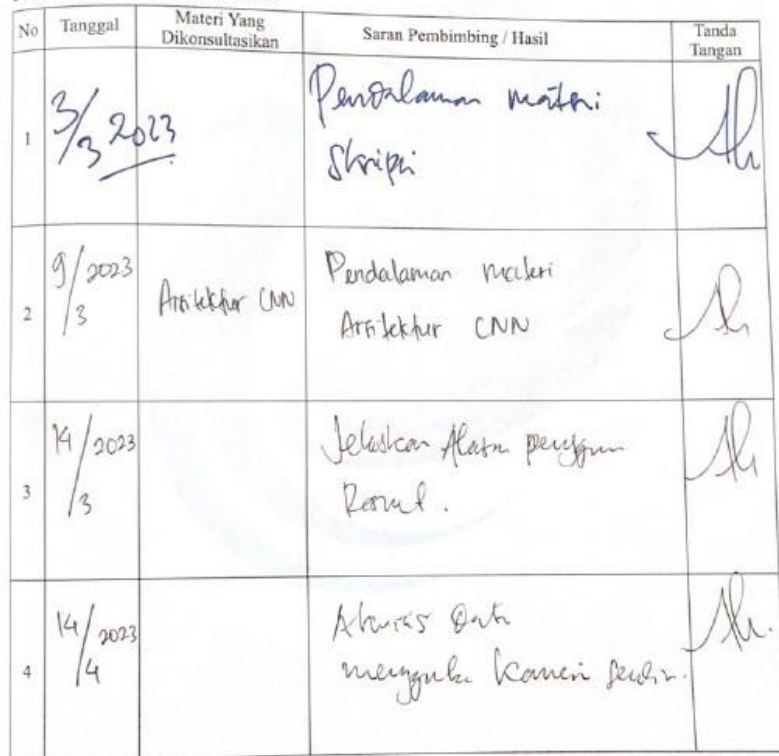 No Tanggal Materi Yang Dikonsultasikan Saran Pembimbing / Hasil Tanda Tangan
1 3/3 2023 Pendalaman materi
Skripsi
2 9/3 2023 Arsitektur CNN Pendalaman materi
Arsitektur CNN
3 14/3 2023 Jelaskan Alasan
4 14/4 2023 Data